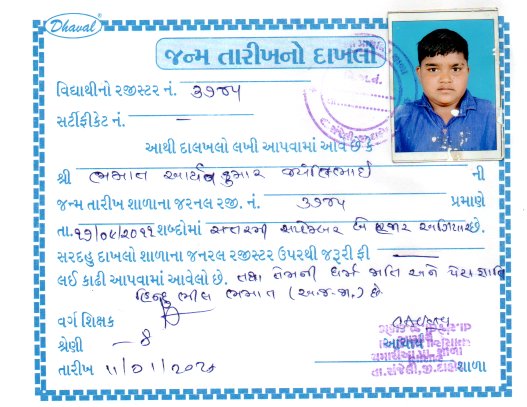 Dhaval
જન્મ તારીખનો દાખલો
વિદ્યાર્થીનો રજીસ્ટર નં. ૩૭૪૫
સર્ટીફીકેટ નં.
આથી દાલખલો લખી આપવામાં આવે છે કે
શ્રી ભમાત આર્યનકુમાર જયંતિભાઈ ની
જન્મ તારીખ શાળાના જરનલ રજી. નં. ૩૭૪૫ પ્રમાણે
તા. ૧૭/૦૯/૨૦૧૧ શબ્દોમાં સત્તરમી સપ્ટેમ્બર બે હજાર અગિયાર છે.
સરદહુ દાખલો શાળાના જનરલ રજીસ્ટર ઉપરથી જરૂરી ફી
લઈ કાઢી આપવામાં આવેલો છે. તથા તેમની ધર્મ જાતિ અને પેટા જાતિ
હિન્દુ ભીલ ભમાત (અ.જ.જા.) છે
વર્ગ શિક્ષક
શ્રેણી - 8
આચાર્ય
તારીખ 11/01/202
શાળા